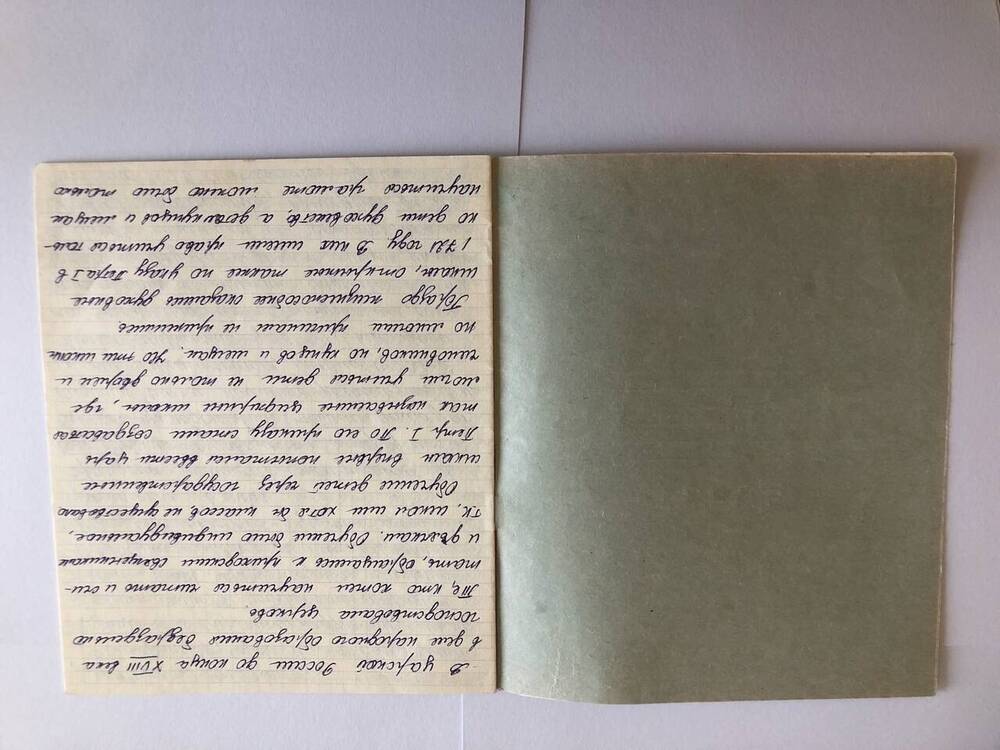 В царской России до конца XVIII века
в деле народного образования безраздельно
господствовала церковь.
Те, кто хотел научиться читать и счи-
тать, обращались к приходским священникам
и дьячкам. Обучение было индивидуальное,
т.к. школ или хотя бы классов, не существовало
Обучение детей через государственные
школы впервые попытался ввести царь
Петр I. По его приказу стали создаваться
так называемые цифирные школы, где
могли учиться дети не только дворян и
чиновников, но купцов и мещан. Но эти школы
по многим причинам не прижились.
Гораздо жизнеспособнее оказались духовные
школы, открытые также по указу Петра I в
1721 году. В них имели право учиться толь-
ко дети духовенства, а детям купцов и мещан
научиться грамоте можно было только